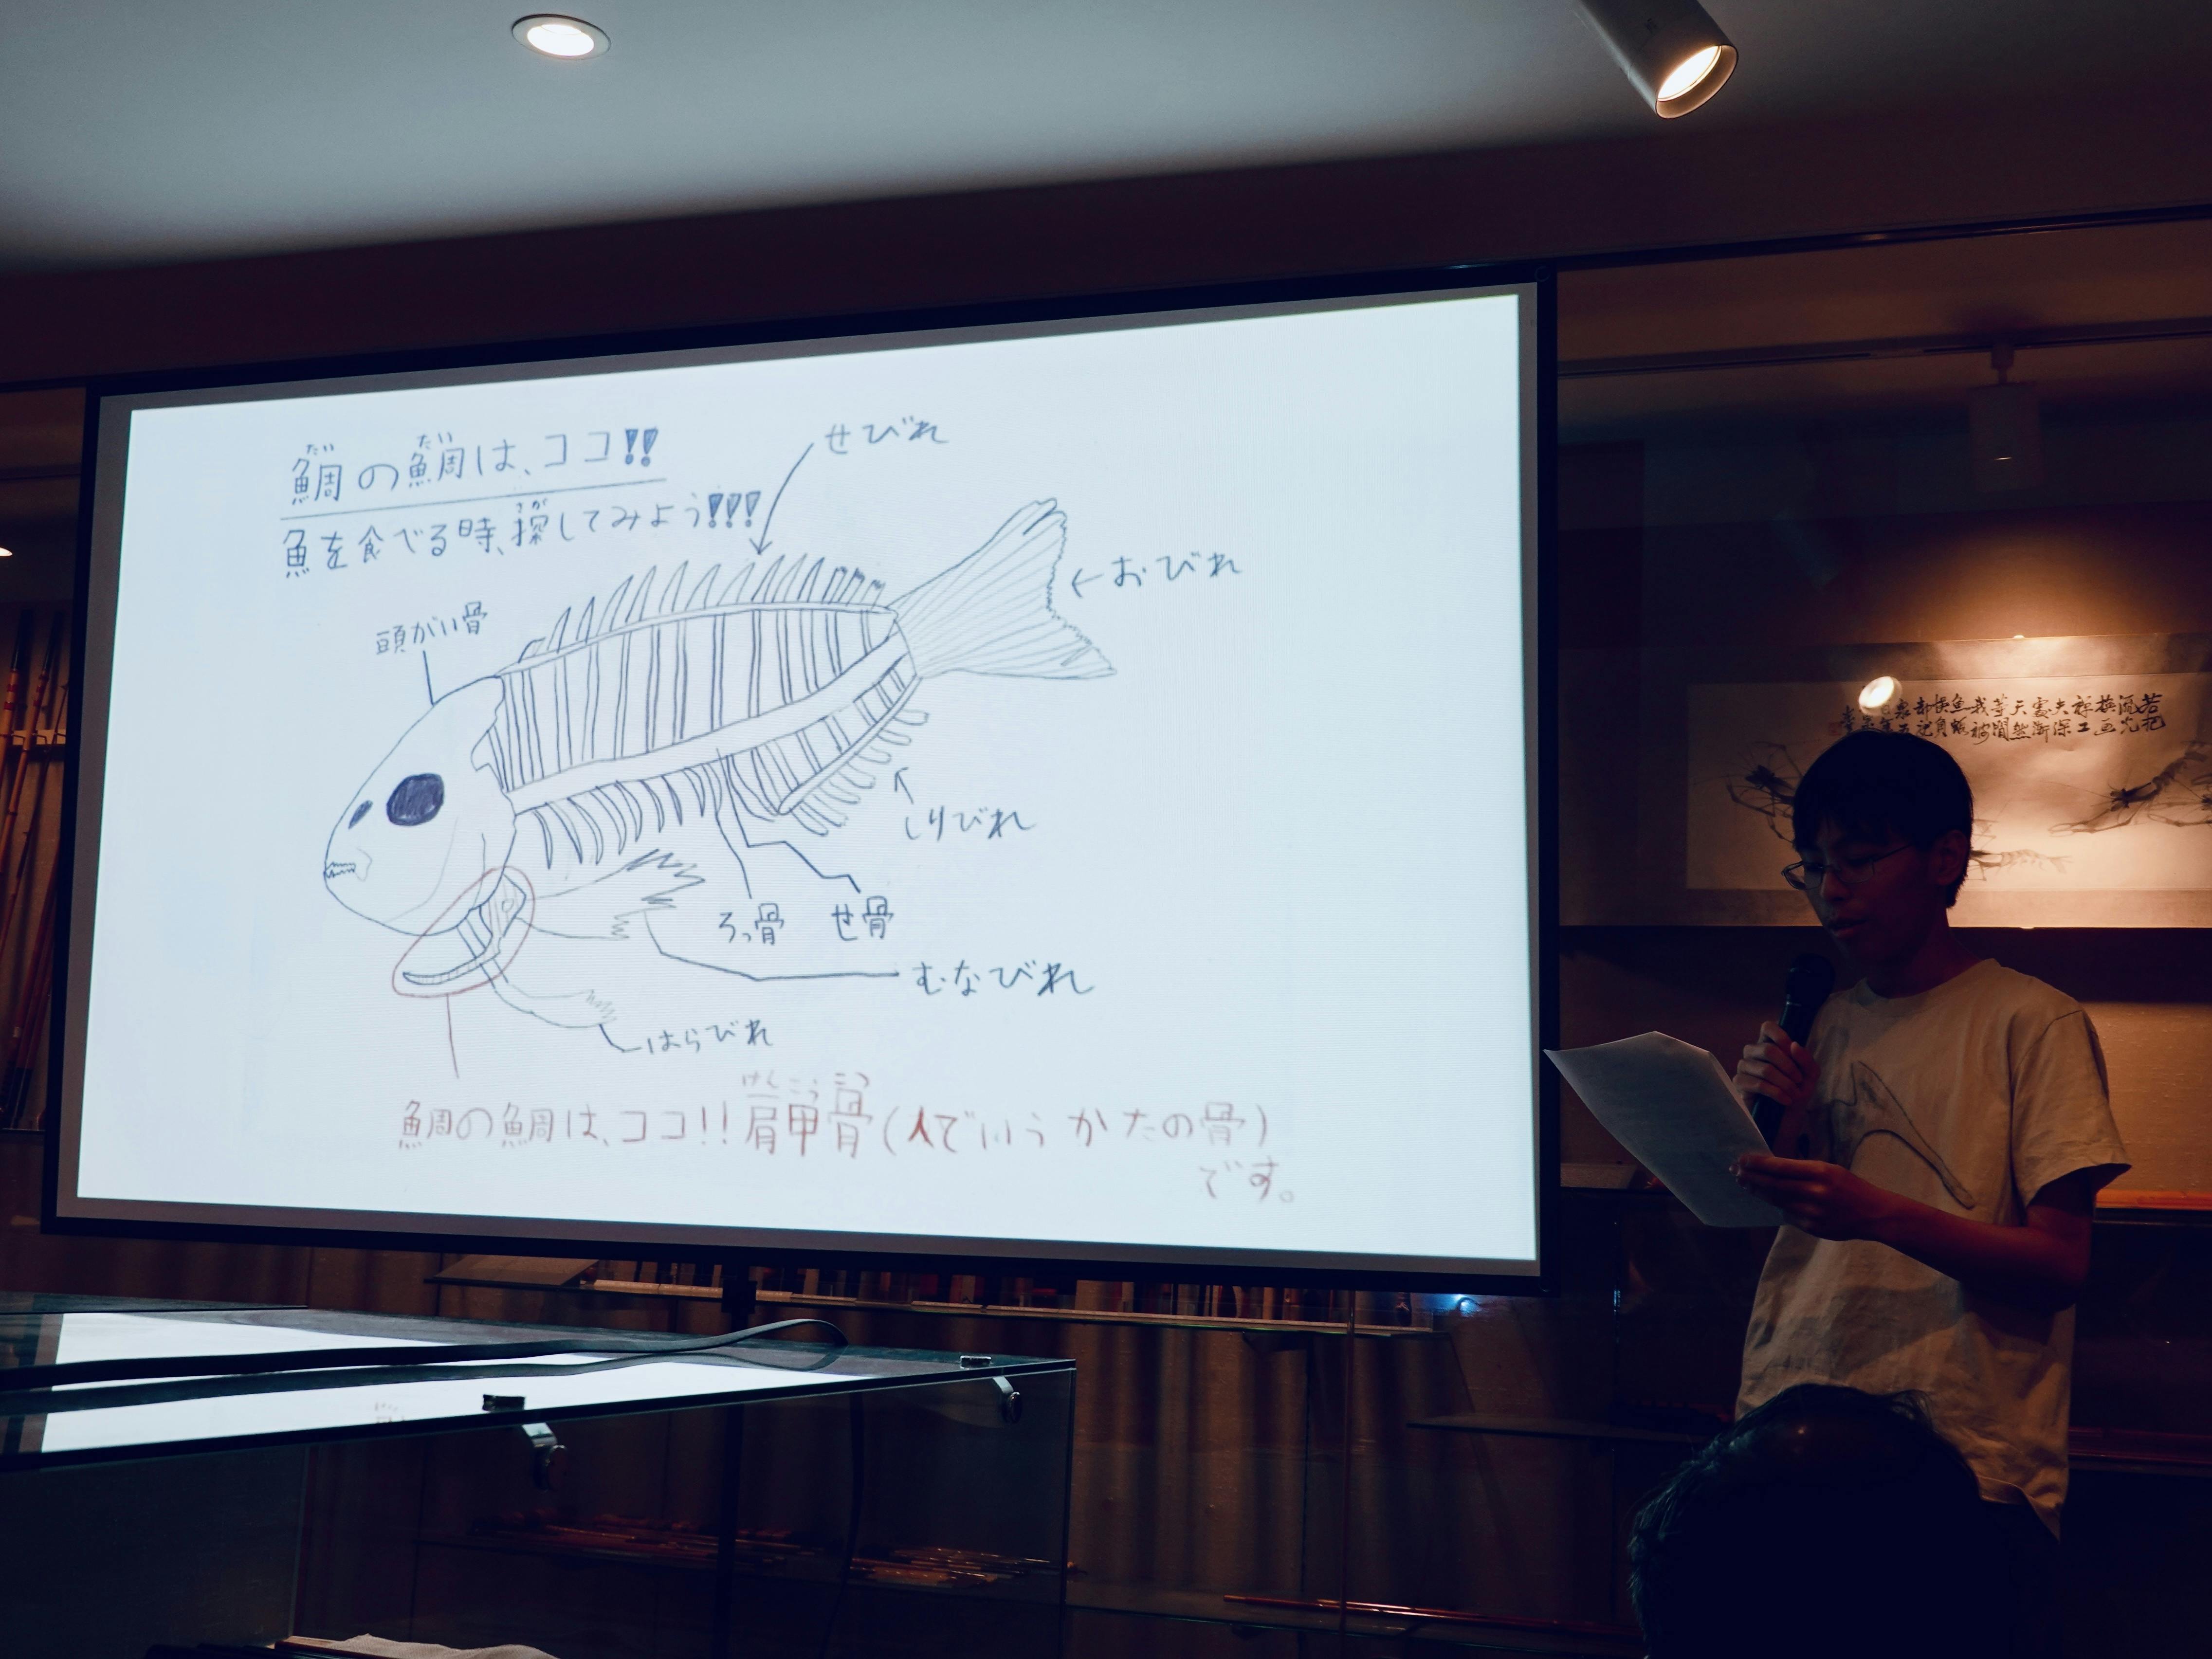 鯛の鯛は、ココ!!
魚を食べる時、探してみよう!!!
せびれ
おびれ
頭がい骨
しりびれ
ろっ骨
せ骨
むなびれ
はらびれ
鯛の鯛は、ココ!! 肩甲骨(人でいうかたの骨)
です。